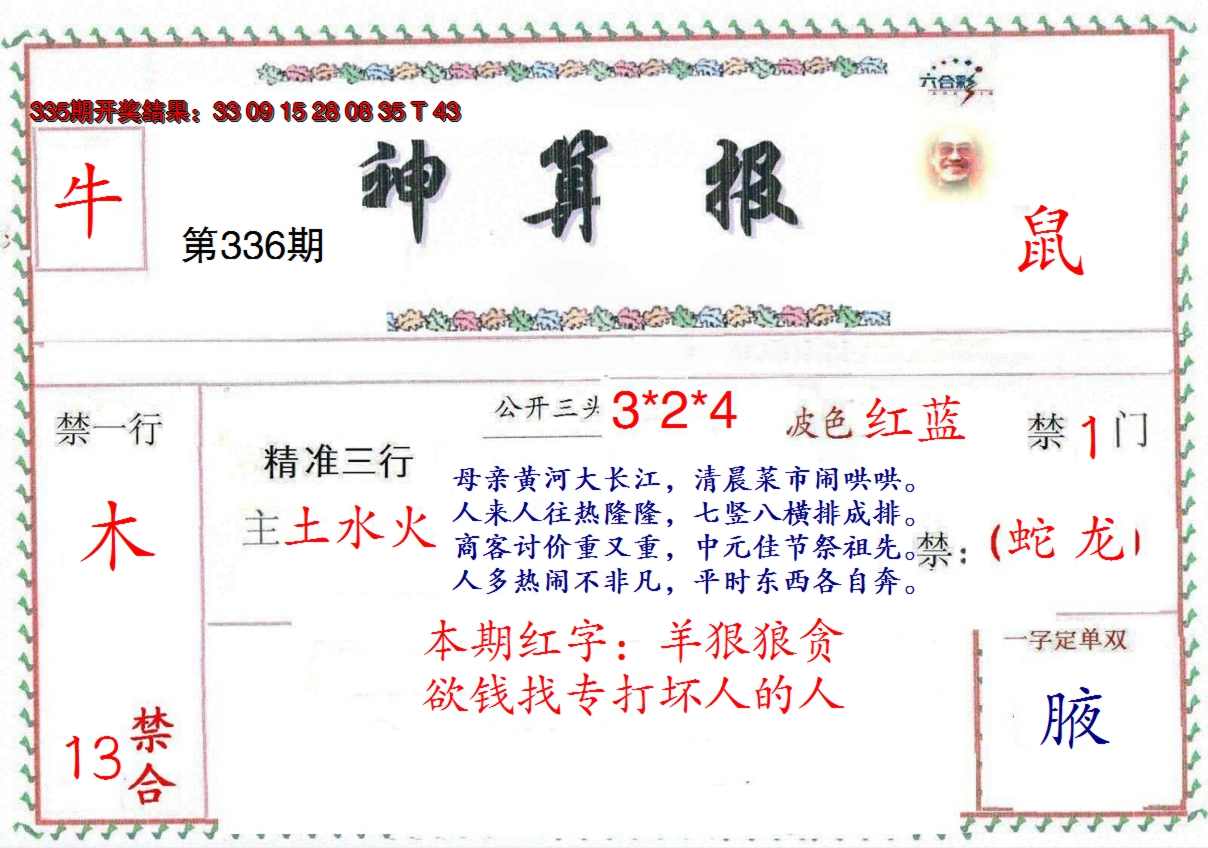 六合彩
335期开奖结果：33 09 15 28 08 35 T 43
神算报
牛
第336期
鼠
禁一行
木
13
禁合
公开三头 3*2*4
波色 红蓝
禁1门
精准三行
主土水火
母亲黄河大长江，清晨菜市闹哄哄。
人来人往热隆隆，七竖八横排成排。
商客讨价重又重，中元佳节祭祖先。
人多热闹不非凡，平时东西各自奔。
禁：（蛇 龙）
本期红字：羊狠狼贪
欲钱找专打坏人的人
一字定单双
腋